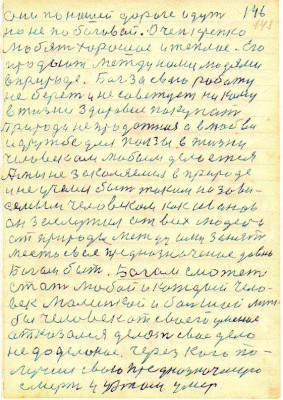 они по нашей дороге идут 146
но не по боговой. Очень крепко
любят хорошое и теплое. Его
продают между нами людями
в природе. Бог за свою работу
не берет и не советует никому
в жизни здоровие покупать
Природа не продажная а в любви
и дружбе для пользы в жизни
человеком любым делается
А мы не заколялися в природе
и не учился быть таким незави-
семым человеком как Иванов
он заслужил от всех людей и
от природы между ими занять
место свое предназначение
Богом быть. Богом сможет
стать любой и каждый чело-
век маленкой и большой
бы человек от своего умения
отказался делать свое дело
не доделоное. через кого по-
лучил свою предназначеную
смерть и в этом умер